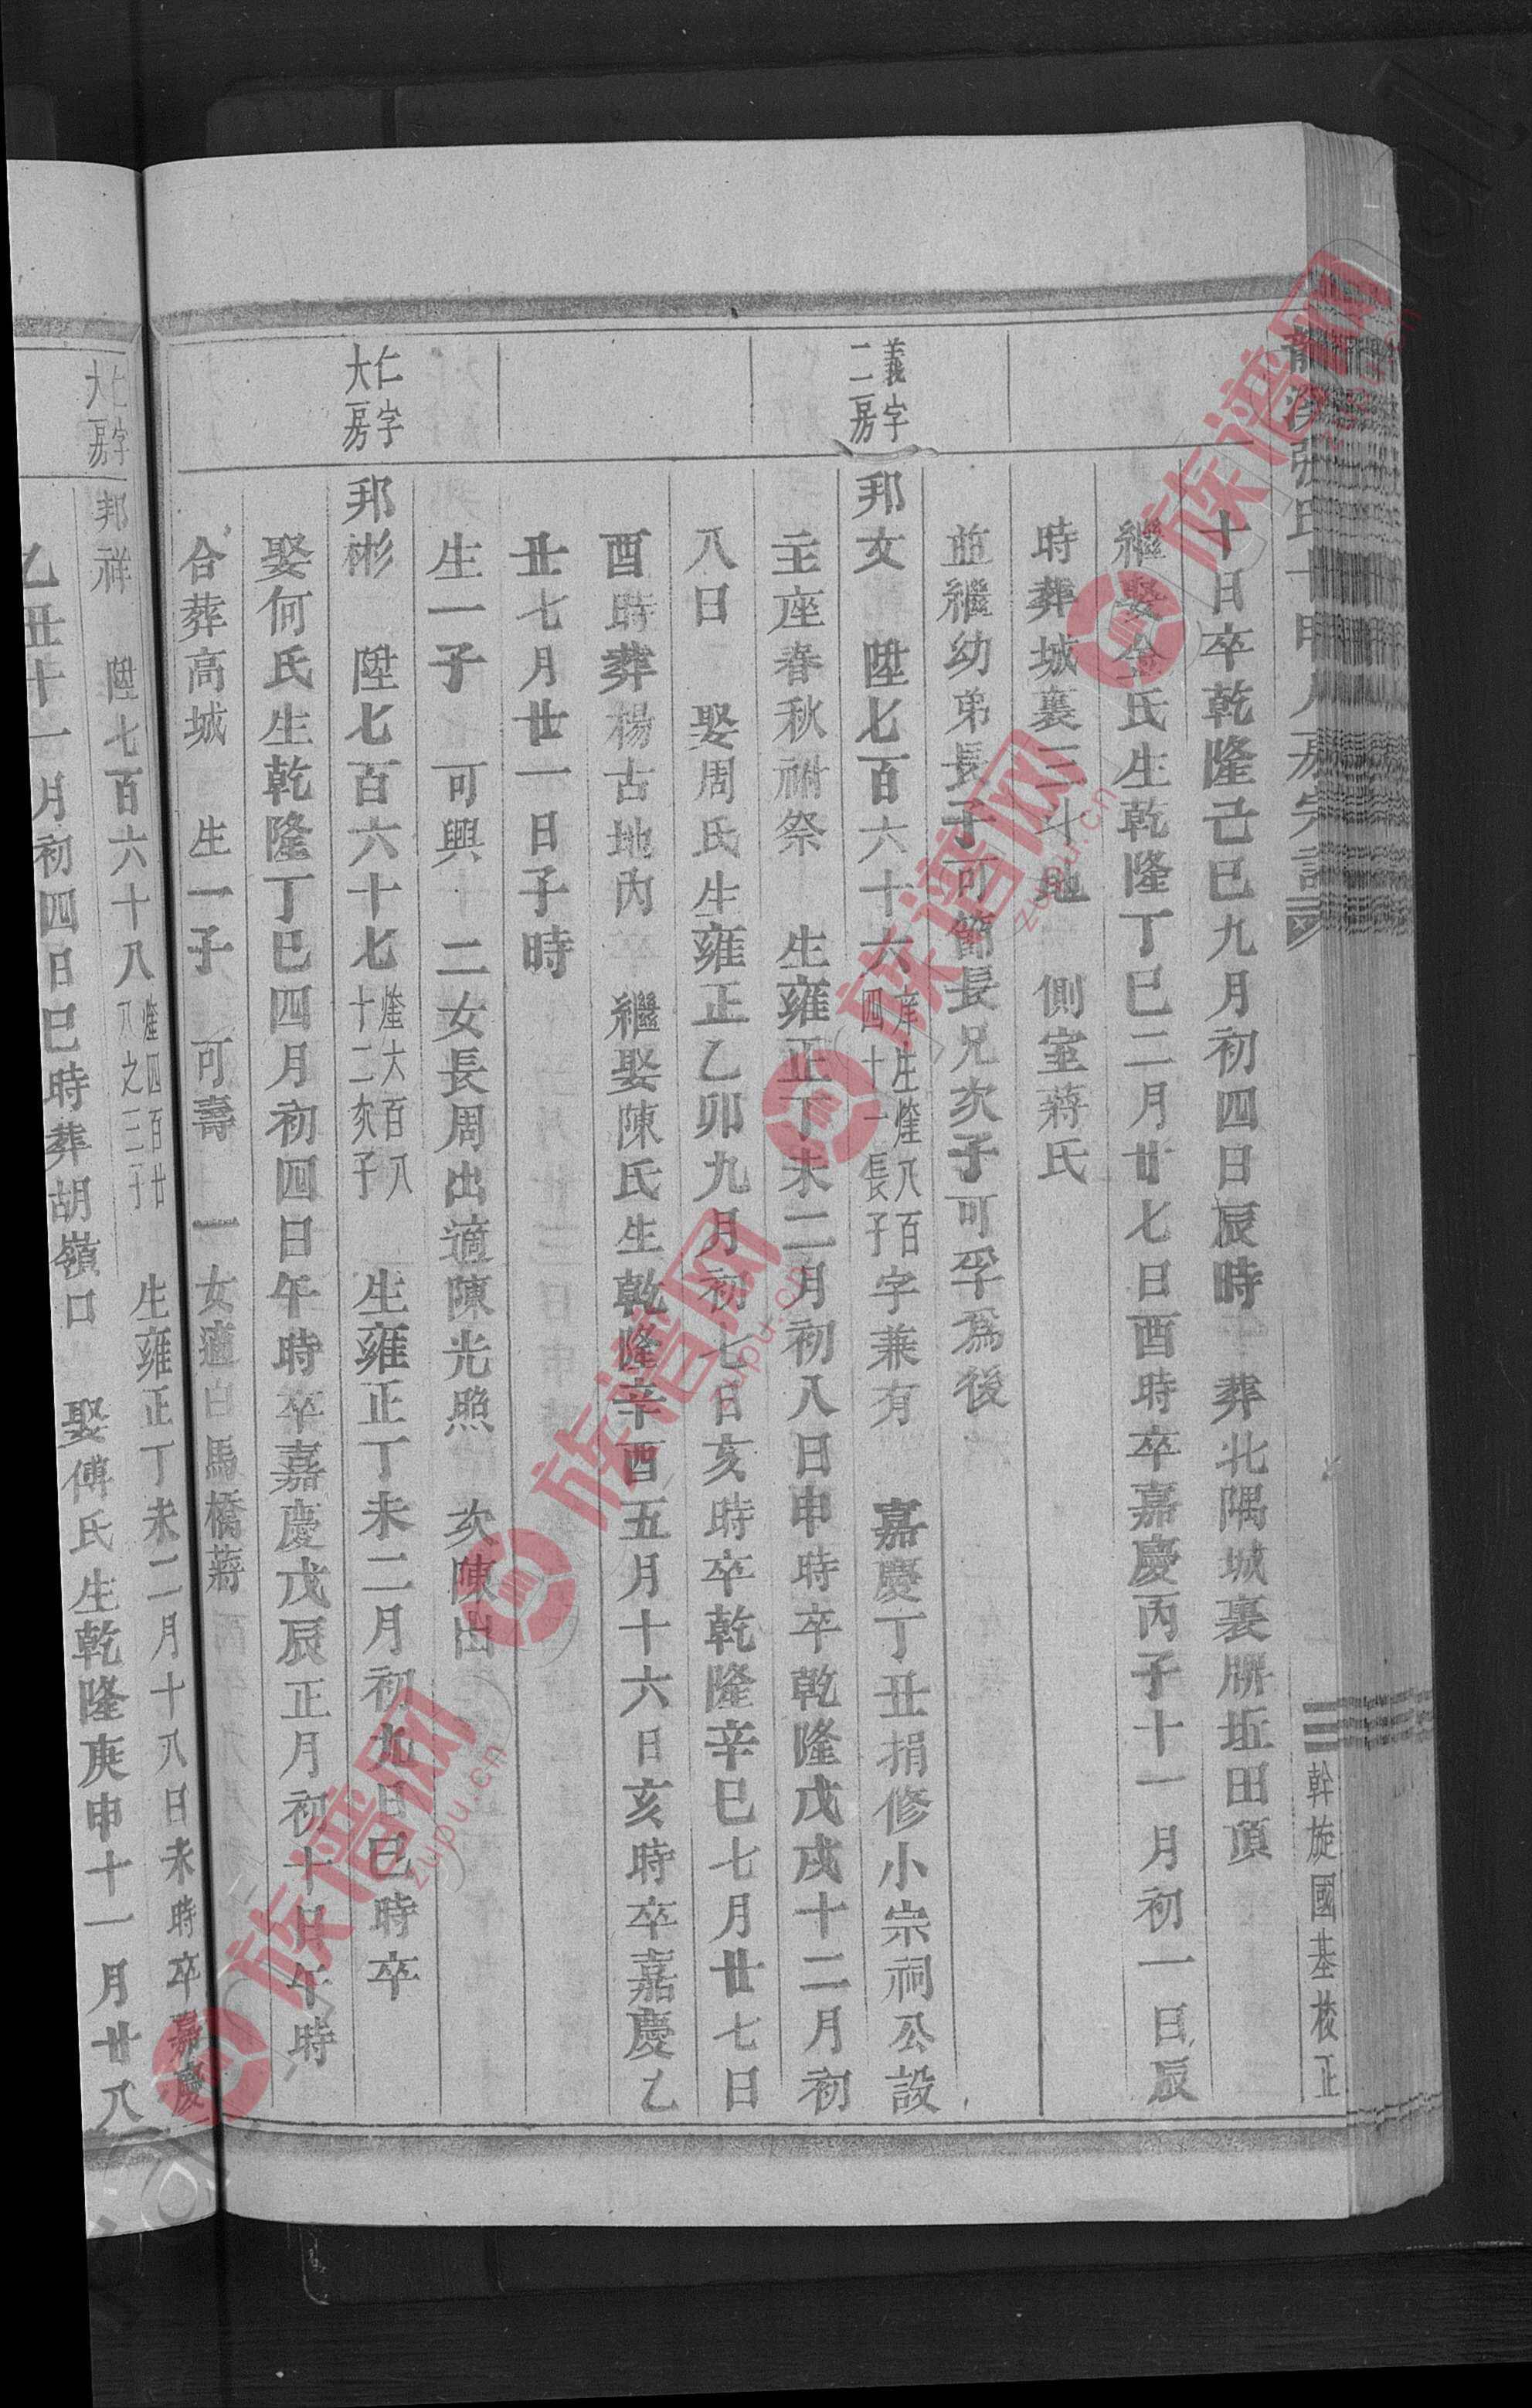 幹旋國基校正
十日卒乾隆己巳九月初四日辰時 葬北隅城裏塀坵田頂
繼娶金氏生乾隆丁巳二月廿七日酉時卒嘉慶丙子十一月初一日辰
時葬城裏三斗地 側室蔣氏
並繼幼弟長子可簡長兄次子可孚爲後
義字
二房
邦文 陞七百六十六 庠生煃八百
四十一長子 字兼有 嘉慶丁丑捐修小宗祠公設
主座春秋祔祭 生雍正丁未二月初八日申時卒乾隆戊戌十二月初
八日 娶周氏生雍正乙卯九月初七日亥時卒乾隆辛巳七月廿七日
酉時葬楊古地內 繼娶陳氏生乾隆辛酉五月十六日亥時卒嘉慶乙
丑七月廿一日子時
生一子 可興 二女長周出適陳光照 次陳出
仁字
大房
邦彬 陞七百六十七 煃六百八
十二次子 生雍正丁未二月初九日巳時卒
娶何氏生乾隆丁巳四月初四日午時卒嘉慶戊辰正月初十日午時
合葬高城 生一子 可壽 一女適白馬橋蔣
仁字
大房
邦祥 陞七百六十八 煃四百廿
八之三子 生雍正丁未二月十八日未時卒嘉慶
乙丑十一月初四日巳時葬胡嶺口 娶傅氏生乾隆庚申十一月廿八
族谱网
zupu.cn
族谱网
zupu.cn
族谱网
zupu.cn
族谱网
zupu.cn